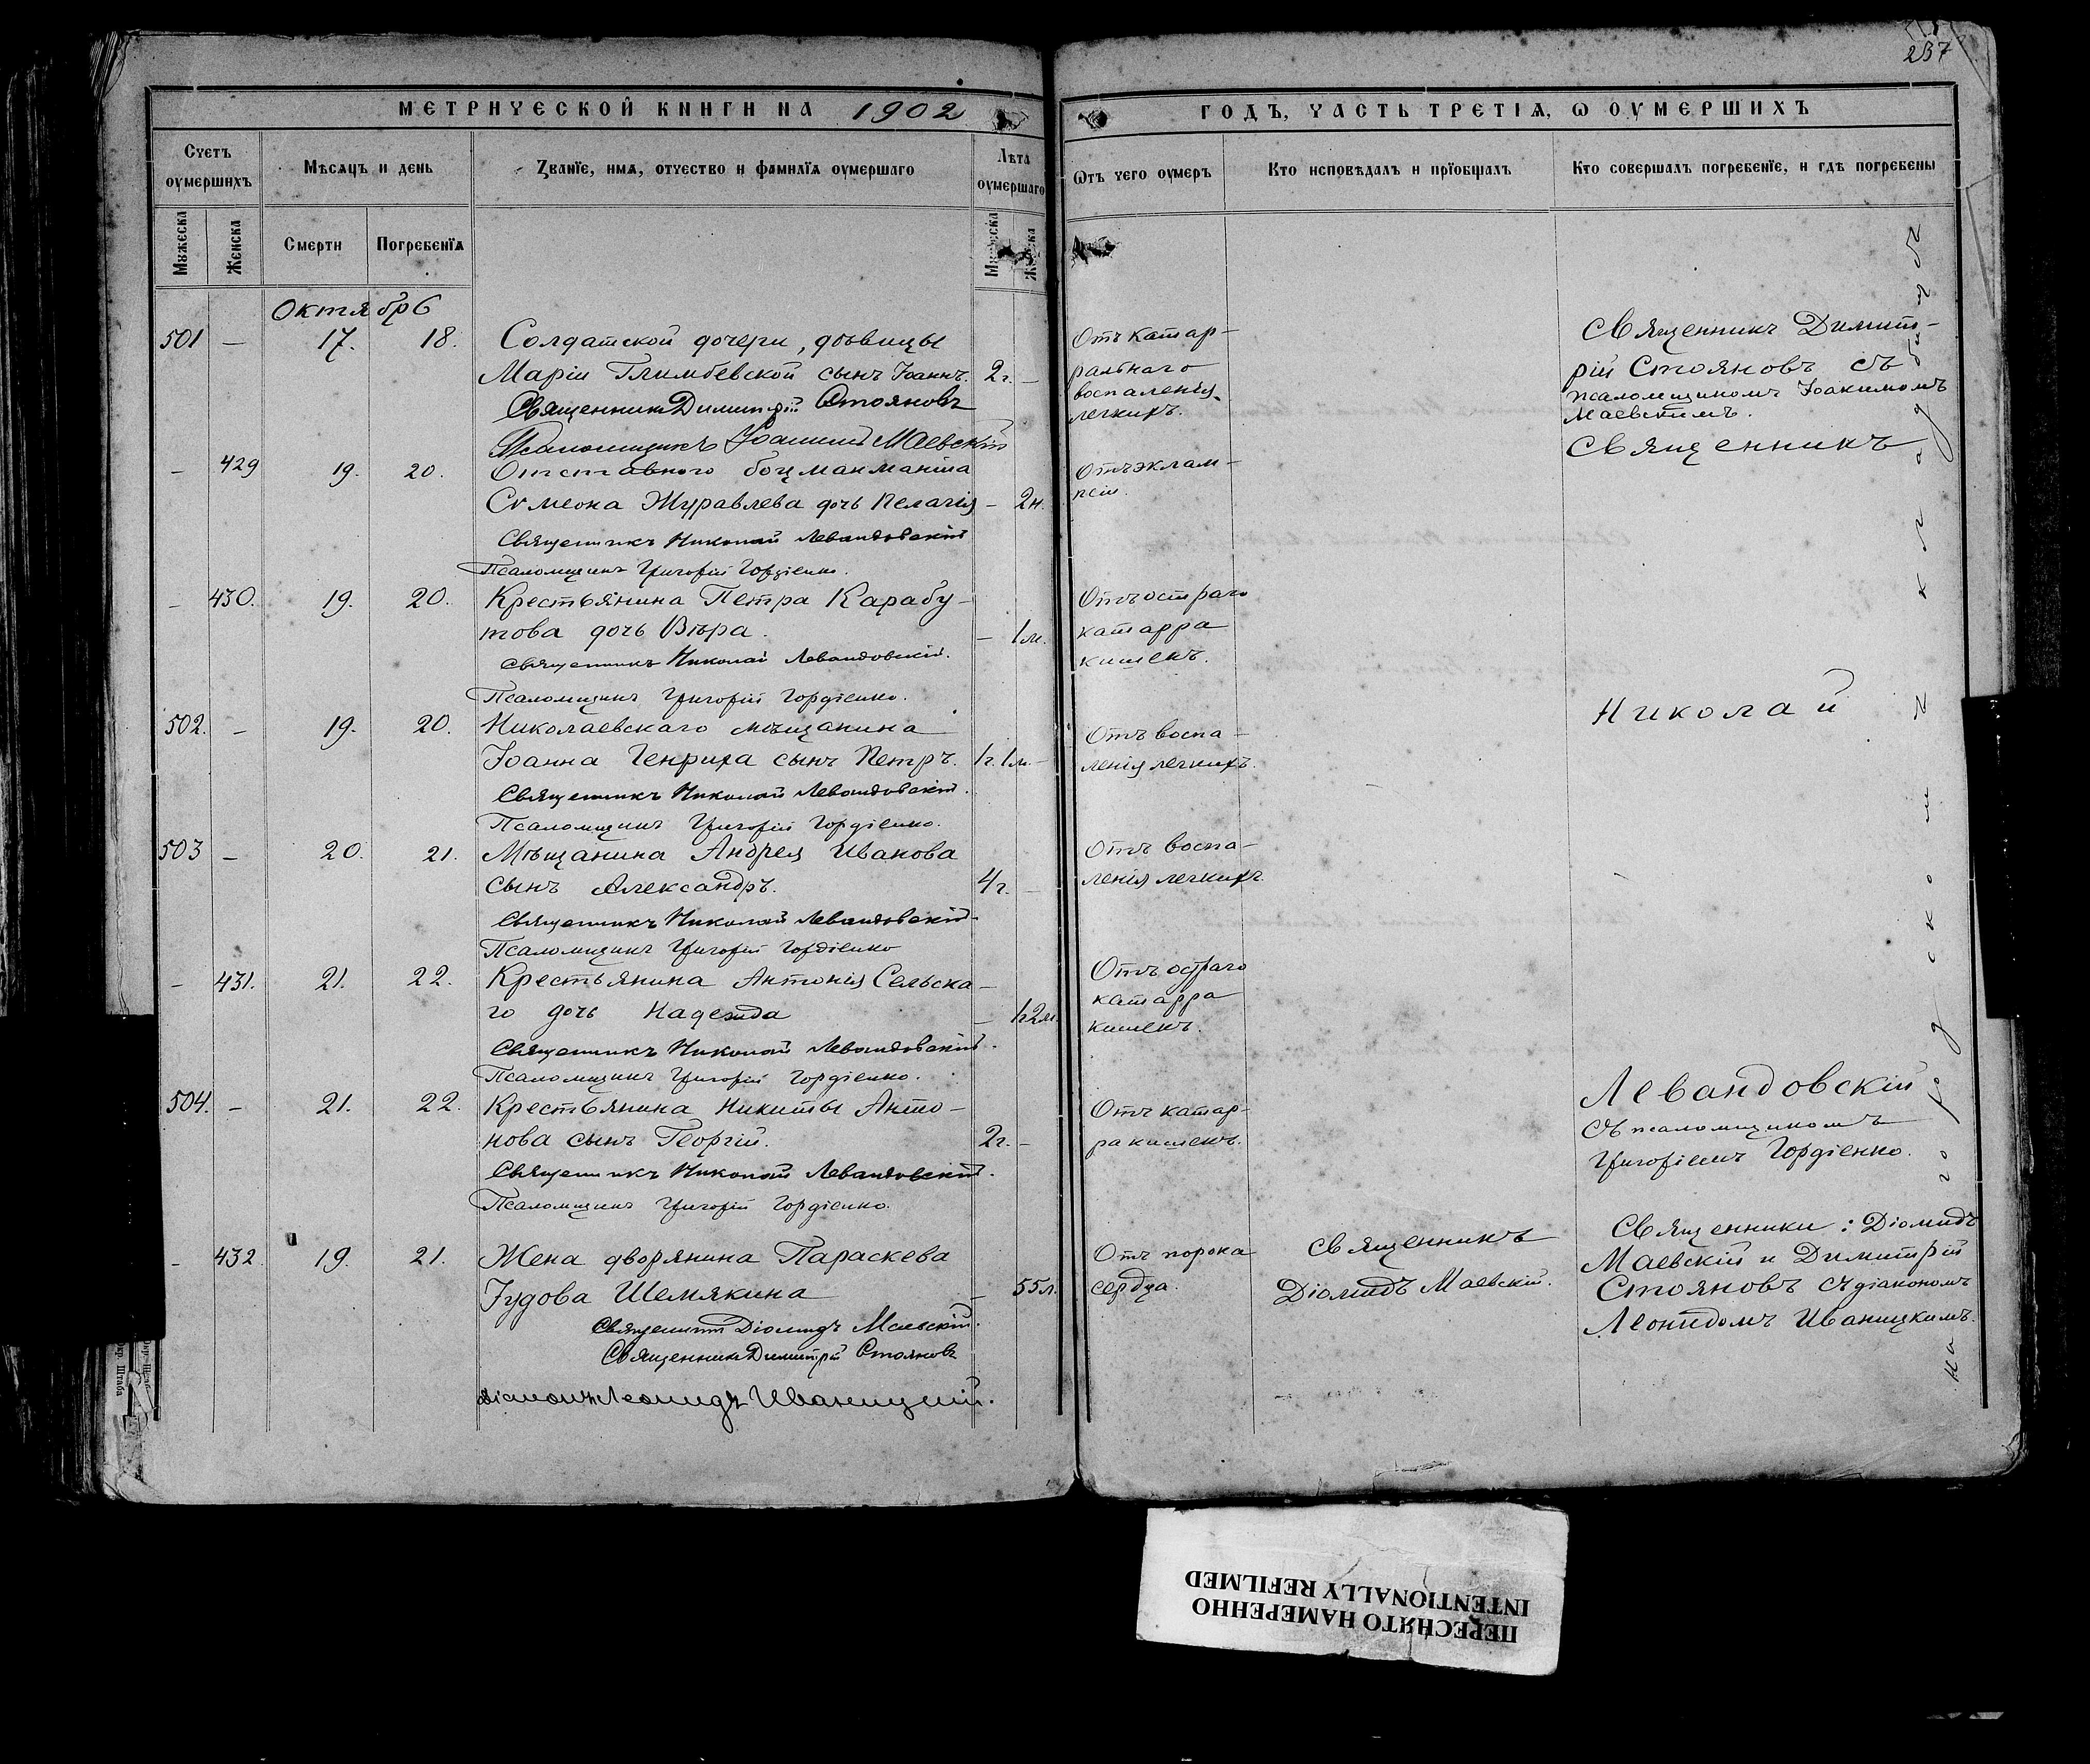 237
МЕТРИЧЕСКОЙ КНИГИ НА 1902
ГОДЪ, ЧАСТЬ ТРЕТІѦ, Ѡ ОУМЕРШИХЪ
Счетъ оумершихъ
Мѣсѧцъ и день
Званїе, имѧ, отчество и фамилїѧ оумершаго
Лѣта оумершаго
Ѿтъ чего оумеръ
Кто исповѣдалъ и прїобщалъ
Кто совершалъ погребенїе, и гдѣ погребены
Мужеска
Женска
Смерти
Погребенїѧ
Мужеска
Женска
Октябрь
501 – 17. 18. Солдатской дочери, дѣвицы
Маріи Глимбевской сынъ Іоаннъ. 2г. –
Священникъ Димитрій Стояновъ
Псаломщикъ Іоакимъ Маевскій
Отъ катар-
ральнаго
воспаленія
легкихъ.
Священникъ Димит-
рій Стояновъ съ
псаломщикомъ Іоакимомъ
Маевскимъ.
– 429 19. 20. Отставного боцманмата
Сѵмеона Журавлева дочь Пелагія – 2н.
Священникъ Николай Левандовскій
Псаломщикъ Григорій Гордіенко.
Отъ эклам-
псіи.
Священникъ
– 430. 19. 20. Крестьянина Петра Карабу-
това дочь Вѣра. – 1м.
Священникъ Николай Левандовскій.
Псаломщикъ Григорій Гордіенко.
Отъ остраго
катарра
кишекъ.
502. – 19. 20. Николаевскаго мѣщанина
Іоанна Генриха сынъ Петръ. 1г.1м. –
Священникъ Николай Левандовскій.
Псаломщикъ Григорій Гордіенко.
Отъ воспа-
ленія легкихъ.
Николай
503 – 20. 21. Мѣщанина Андрея Иванова
сынъ Александръ. 4г. –
Священникъ Николай Левандовскій.
Псаломщикъ Григорій Гордіенко
Отъ воспа-
ленія легкихъ.
– 431. 21. 22. Крестьянина Антонія Сельска-
го дочь Надежда – 1г2м.
Священникъ Николай Левандовскій.
Псаломщикъ Григорій Гордіенко.
Отъ остраго
катарра
кишекъ.
504. – 21. 22. Крестьянина Никиты Анто-
нова сынъ Георгій. 2г. –
Священникъ Николай Левандовскій.
Псаломщикъ Григорій Гордіенко.
Отъ катар-
ра кишекъ.
Левандовскій
съ псаломщикомъ
Григоріемъ Гордіенко.
– 432 19. 21. Жена дворянина Параскева
Іудова Шемякина – 55л.
Священникъ Діомидъ Маевскій.
Священникъ Димитрій Стояновъ
Діаконъ Леонидъ Иваницкій.
Отъ порока
сердца.
Священникъ
Діомидъ Маевскій.
Священники: Діомидъ
Маевскій и Димитрій
Стояновъ съ діакономъ
Леонидомъ Иваницкимъ.
На городскомъ кладбищѣ
ПЕРЕСНЯТО НАМЕРЕННО
INTENTIONALLY REFILMED